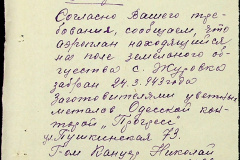 Согласно Вашего тре-
бования, сообщаем, что
аэроплан находящийся
на поле земельного об-
щества с. Журовка
забран 24.3.943 года
Заготовителями цветных
металов Одесской кон-
торой „Прогресс"
ул. Пушкинская 73.
Николай